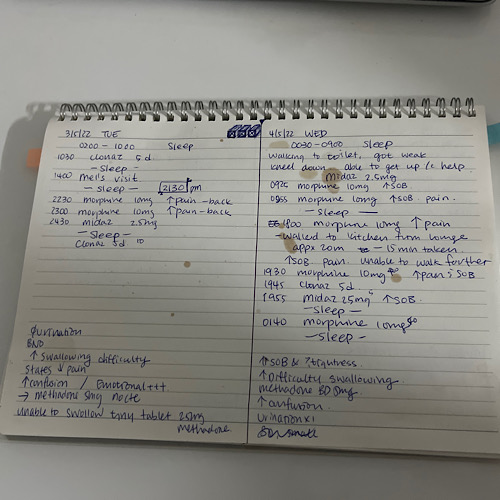 3/5/22 TUE
0200 - 1000 Sleep
1030 clonaz 5d
- Sleep -
1400 Mel's visit
- Sleep - 2130 pm
2230 morphine 10mg ↑pain - back
2300 morphine 10mg ↑pain - back
2430 midaz 2.5mg
- Sleep -
Clonaz 5d
urination
BNO
↑ swallowing difficulty
States ↓ pain
↑ confusion / Emotional +++
→ methadone 5mg nocte
unable to swallow tiny tablet 2.5mg
methadone
4/5/22 WED
0030 - 0900 Sleep
walking to toilet, got weak
kneel down able to get up c help
midaz 2.5mg
0925 morphine 10mg ↑SOB
0955 morphine 10mg ↑SOB pain.
- Sleep -
1800 morphine 10mg ↑ pain
- walked to kitchen from lounge
appx 20m - 15 min taken
↑SOB pain. unable to walk further
1930 morphine 10mg ↑pain SOB
1945 clonaz 5d.
1955 midaz 2.5mg ↑SOB.
- Sleep -
0140 morphine 10mg
- Sleep -
↑SOB & ?tightness
↑Difficulty swallowing
methadone BD 5mg
↑ confusion
urination x1
small